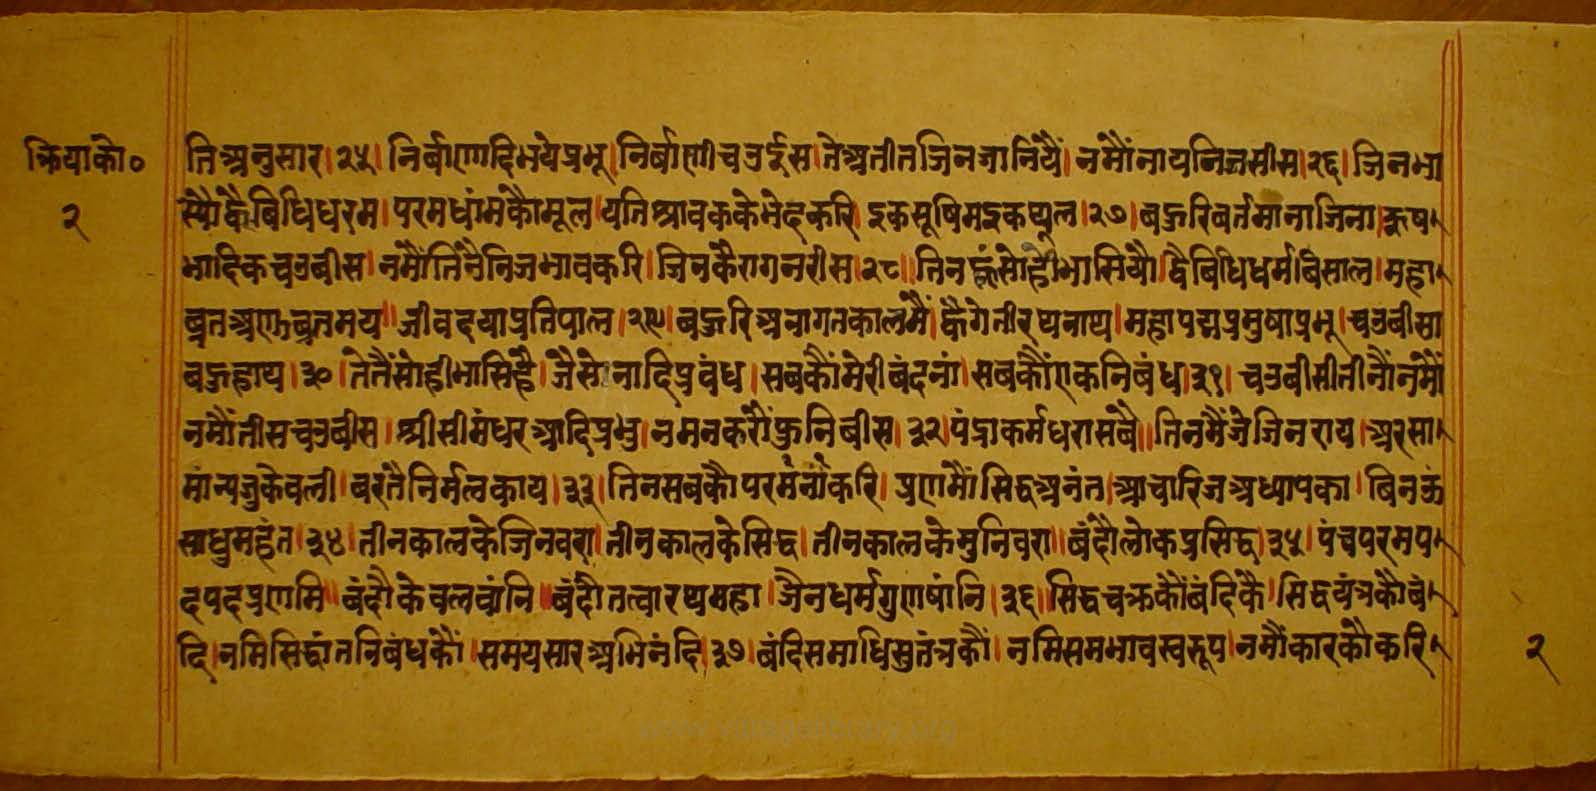 क्रियाको०
तिअनुसार।२५। निर्बाणादिभयेप्रभू।निर्बाणीचउईस।तेअतीतजिनजानियैं।नमौंनायनिजसीस।२६।जिनभा
स्यौकैबिधिधरम।परमधांमकौमूल।यतिश्रावककेभेदकरि।इकसूषिमइकथूल।२७।बहुरिबर्तमानाजिना।रूष
भादिकचउबीस।नमौंतिनैंनिजभावकरि।जिनकैरागनरीस।२८॥तिनहूंसोहीभासियौ।द्वैबिधिधर्मबिसाल।महा
ब्रतअणुब्रतमय॥जीवदयाप्रतिपाल।२९।बहुरिअनागतकालमैं।कैंगेतीरथनाथ।महापद्मप्रमुषाप्रभू।चउबीसा
बहुहाथ।३०।तेतैंसोहीभासिहै।जैसोनादिप्रबंध।सबकौंमेरीबंदनां।सबकौंएकनिबंध।३१।चउबीसीतीनौंनमौं
नमौंतीसचउबीस।श्रीसीमंधरआदिप्रभु।नमनकरौंफुनिबीस।३२।पंद्राकर्मधरासबै॥तिनमैंजेजिनराय।अरसा
मांन्यजुकेवली।बरतैनिर्मलकाय।३३।तिनसबकौपरमंनांकरि।प्रणमौंसिद्धअनंत।आचारिजअध्यापका।बिनऊं
साधुमहंत।३४।तीनकालकेजिनवरा।तीनकालकेसिद्ध।तीनकालकेमुनिवरा॥बंदौलोकप्रसिद्ध।३५।पंचपरमप
दपदप्रणमि॥बंदौकेवलवांनि॥बंदौतत्वारथमहा।जैनधर्मगुणषांनि।३६॥सिद्धचक्रकौंबंदिकै।सिद्धयंत्रकौबं
दि।नमिसिद्धांतनिबंधकौं।समयसारअभिनंदि।३७।बंदिसमाधिसुतंत्रकौं।नमिसमभावस्वरूप।नमौंकारकौकरि
२
२
www.vitragelibrary.org